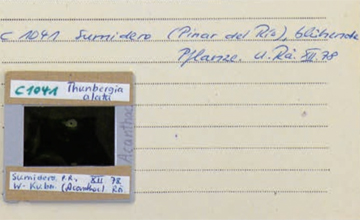 C 1041 Sumidero (Pinar del Río), blühende
Pflanze. U. Rà. XII. 78
C1041 Thunbergia
alata
Acanthac
Sumidero, P.R., XII 78
W-Kuba. (Acanthac.) Rà